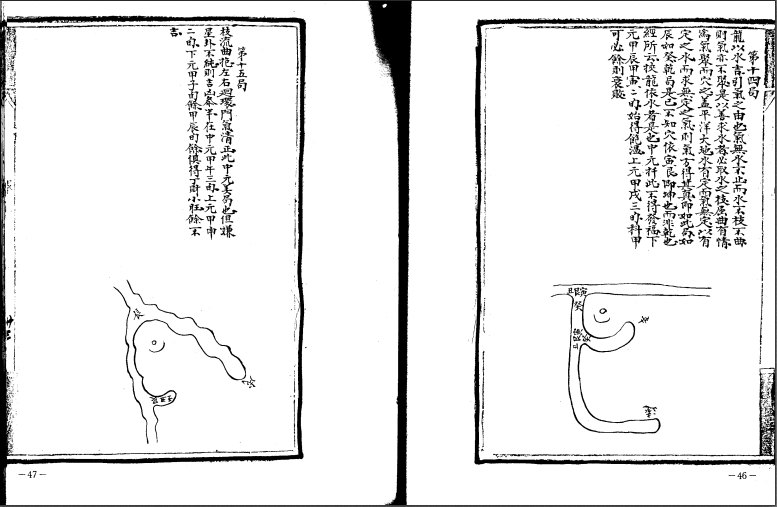 第十四局
龍以水言引氣之由也氣無水不止而水不枝不曲
則氣亦不聚是以善求水者必取水之枝 曲有情
為氣聚而穴之蓋平洋大地水有定而氣無定以有
定之水而求無定之氣則氣方得其真即如此局如
辰如癸乾局是已不知穴依寅艮即坤也而非乾也
經所云枝龍依水者是也中元 此不得發福下
元甲辰甲寅二旬始得飽滿上元甲戌三旬科甲
可必餘則衰敗
艮寅
癸
—46—
第十五局
枝流曲抱左右迴環門氣清正此中元美局也但嫌
星卦不純則吉凶參半在中元甲午三旬上元甲申
二旬下元甲子旬餘甲辰旬餘俱得丁財小旺餘不
吉
—47—